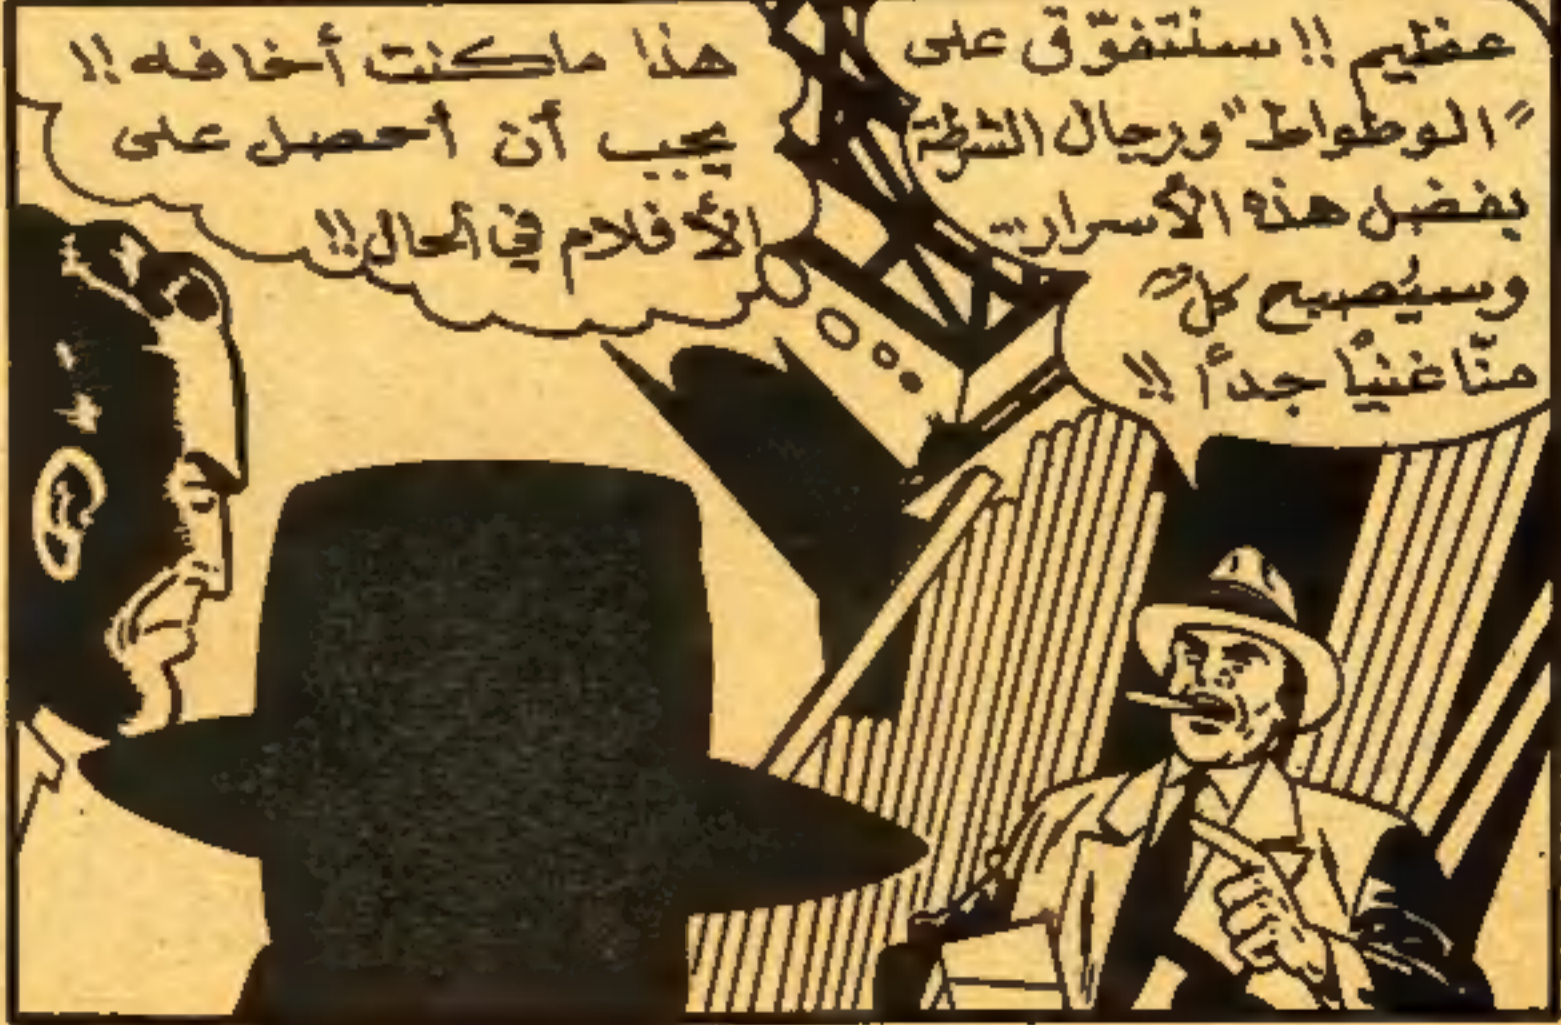 عظيم !! سنتفوّق على
"الوطواط" ورجال الشرطة
بفضل هذه الأسرار...
وسيُصبح كلٌّ
منّا غنيًّا جدًا !!
هذا ما كنت أخافه !!
يجب أن أحصل على
الأفلام في الحال !!